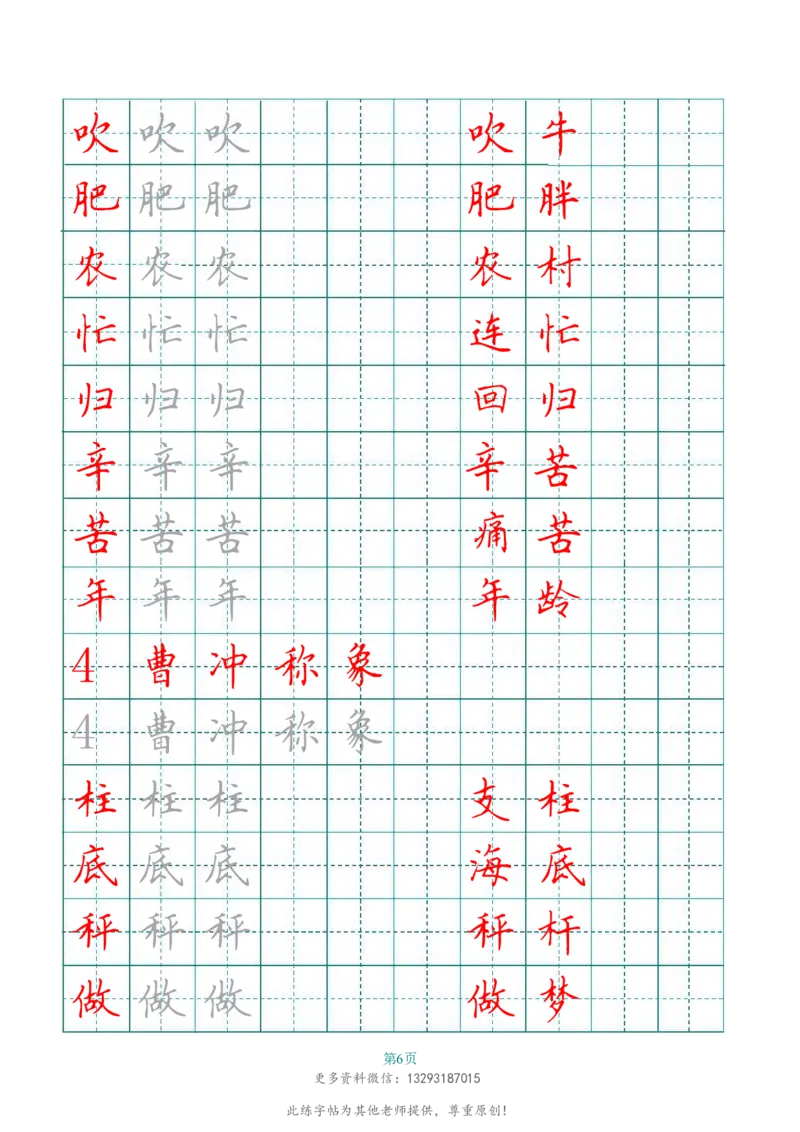 吹 吹 吹 吹 牛
肥 肥 肥 肥 胖
农 农 农 农 村
忙 忙 忙 连 忙
归 归 归 回 归
辛 辛 辛 辛 苦
苦 苦 苦 痛 苦
年 年 年 年 龄
4 曹 冲 称 象
4 曹 冲 称 象
柱 柱 柱 支 柱
底 底 底 海 底
秤 秤 秤 秤 杆
做 做 做 做 梦
第6页
更多资料微信：13293187015
此练字帖为其他老师提供，尊重原创！